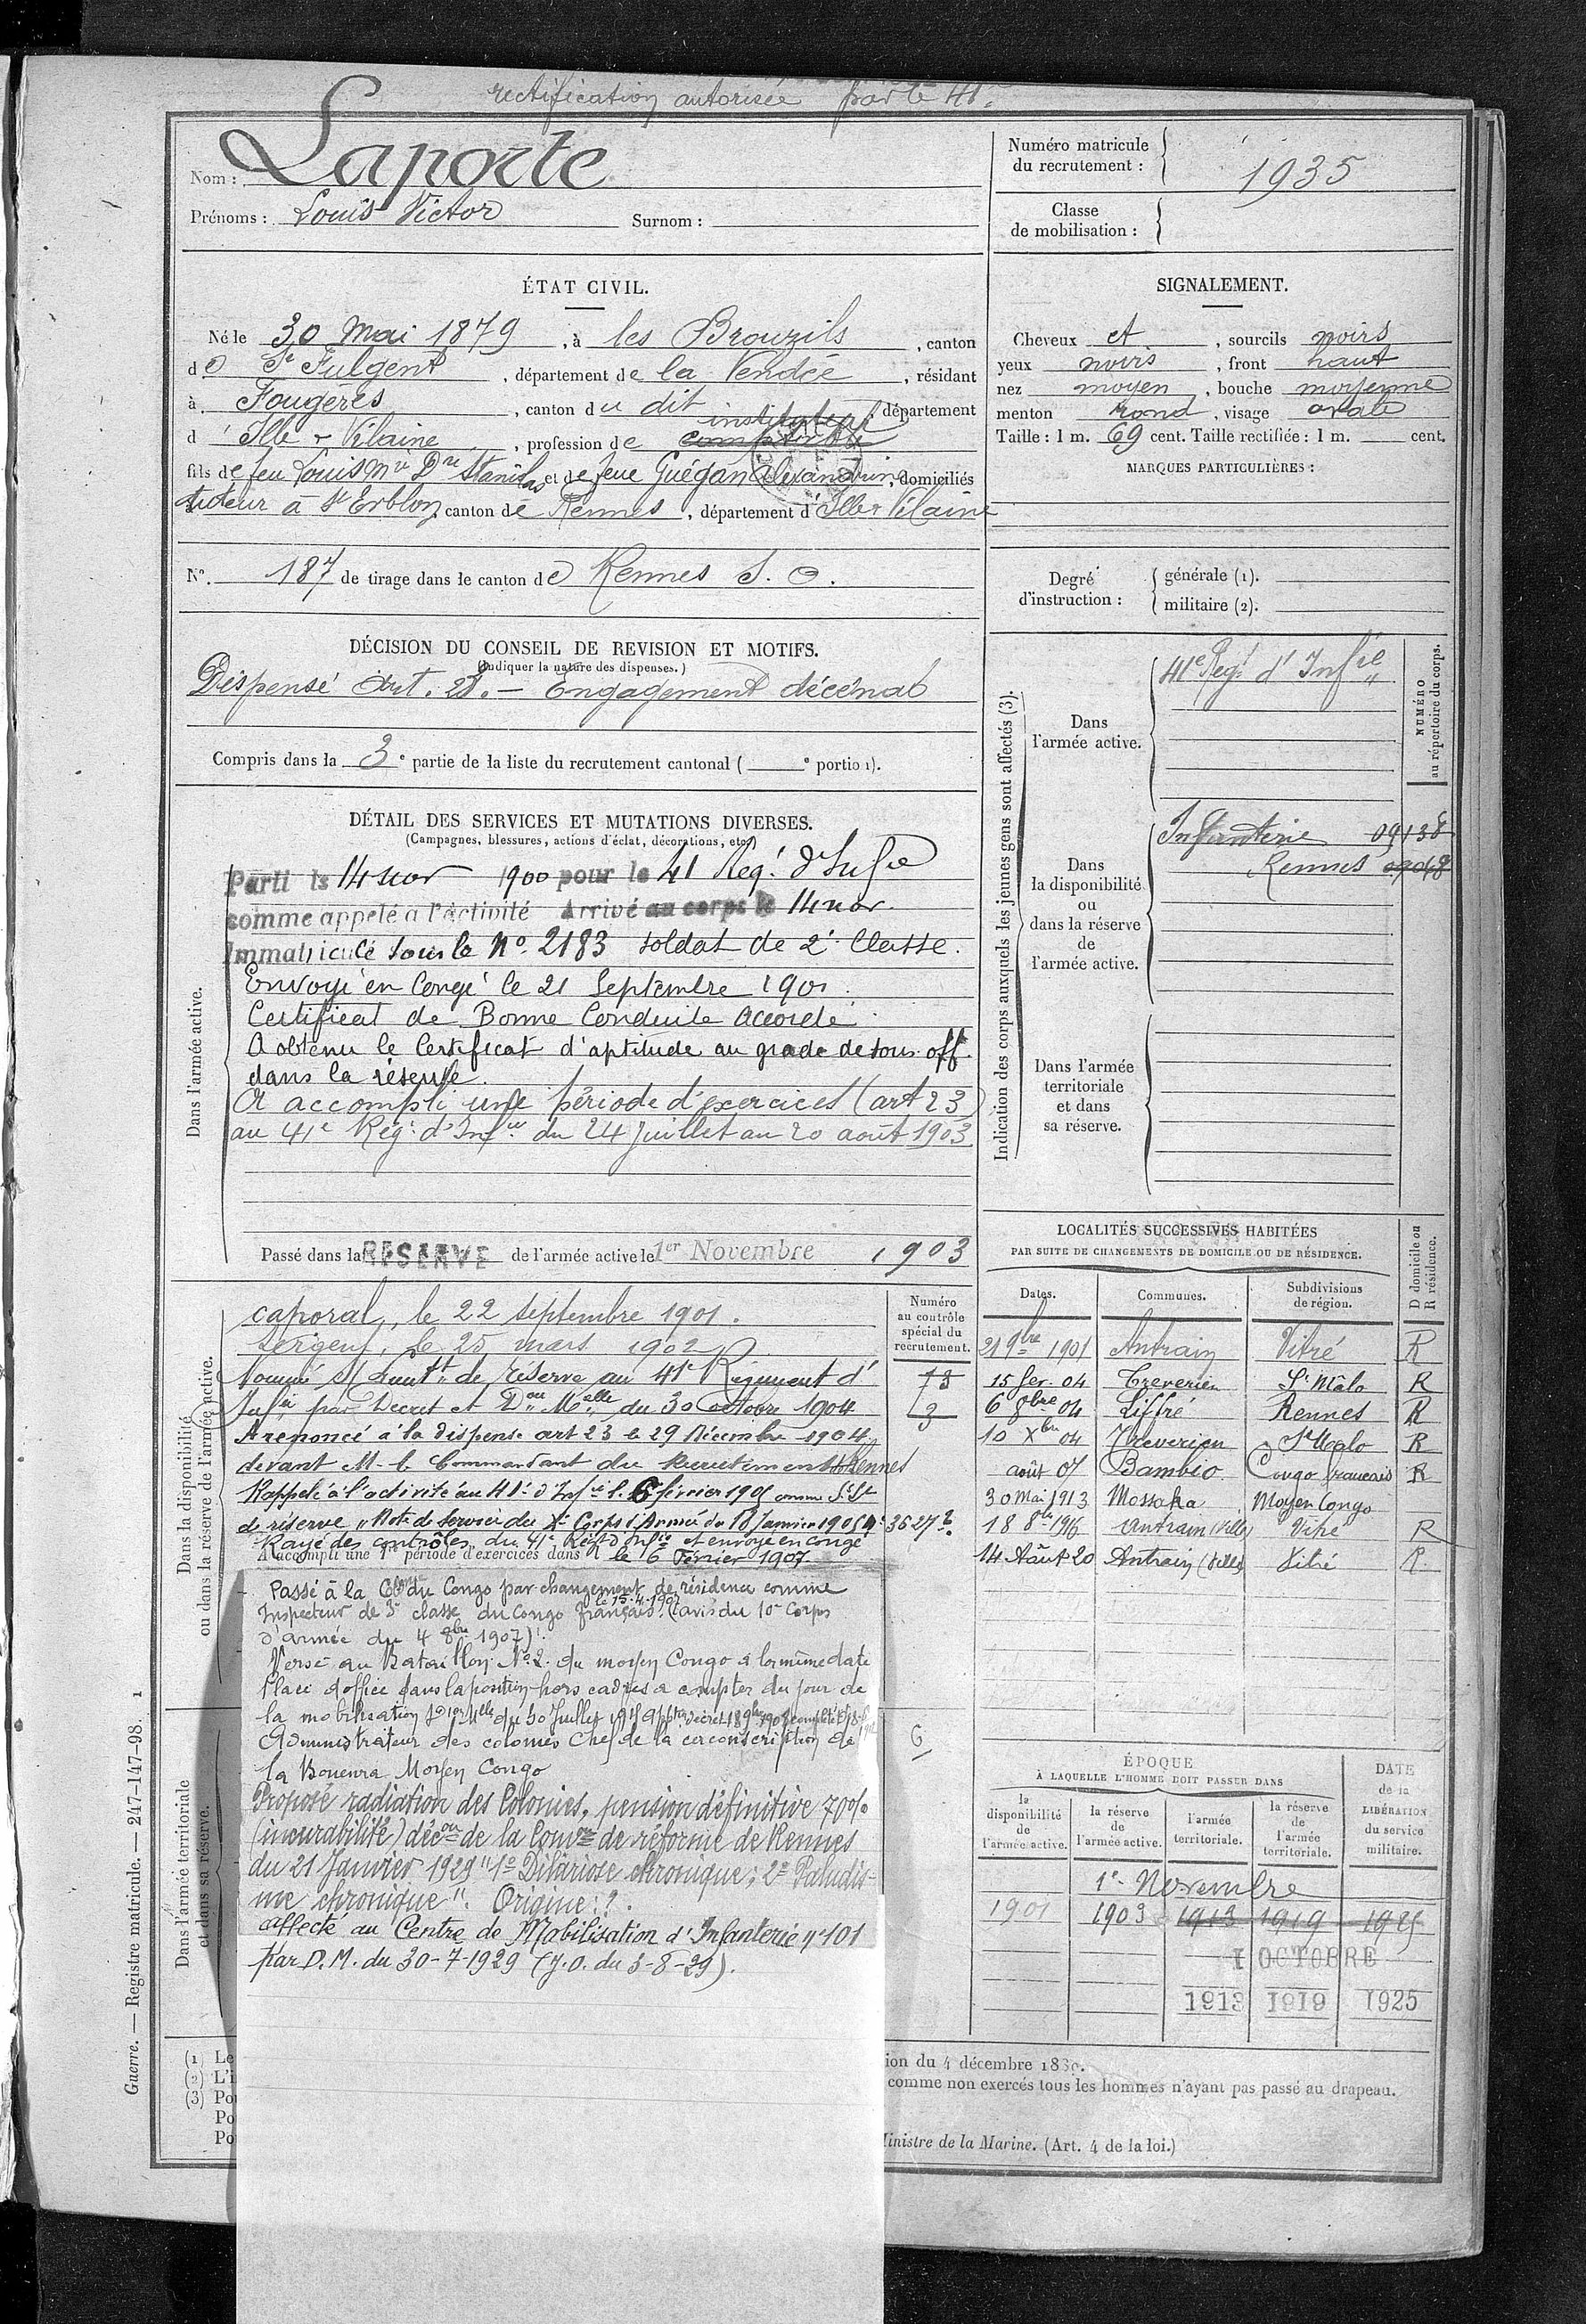 rectification autorisée par le 41e
Nom : Laporte
Prénoms : Louis Victor Surnom :
Numéro matricule du recrutement : 1935
Classe de mobilisation :
ÉTAT CIVIL.
Né le 30 Mai 1879, à les Brouzils, canton
de St Fulgent, département de la Vendée, résidant
à Fougères, canton du dit, département
d'Ille & Vilaine, profession de instituteur
fils de feu Louis Mie Dre Stanislas et de feue Guégan Alexandrine, domiciliés
tuteur à St Erblon, canton de Rennes, département d'Ille & Vilaine
N° 187 de tirage dans le canton de Rennes S. O.
SIGNALEMENT.
Cheveux et, sourcils noirs
yeux noirs, front haut
nez moyen, bouche moyenne
menton rond, visage ovale
Taille : 1 m. 69 cent. Taille rectifiée : 1 m. cent.
MARQUES PARTICULIÈRES :
Degré d'instruction : générale (1).
militaire (2).
DÉCISION DU CONSEIL DE REVISION ET MOTIFS.
(Indiquer la nature des dispenses.)
Dispensé Art. 23. — Engagement décennal
Compris dans la 3e partie de la liste du recrutement cantonal ( e portion).
DÉTAIL DES SERVICES ET MUTATIONS DIVERSES.
(Campagnes, blessures, actions d'éclat, décorations, etc.)
Dans l'armée active.
Parti le 14 nov 1900 pour le 41 Reg.t d'Infie
comme appelé à l'activité Arrivé au corps le 14 nov.
Immatriculé sous le N° 2183 soldat de 2e Classe.
Envoyé en Congé le 21 Septembre 1901.
Certificat de Bonne Conduite Accordé.
A obtenu le Certificat d'aptitude au grade de sous-off.
dans la réserve.
A accompli une période d'exercices (art 23)
au 41e Rég.t d'Infie du 24 Juillet au 20 août 1903
Passé dans la RESERVE de l'armée active le 1er Novembre 1903
Indication des corps auxquels les jeunes gens sont affectés (3).
NUMÉRO au répertoire du corps.
Dans l'armée active.
41e Reg.t d'Infie
Dans la disponibilité ou dans la réserve de l'armée active.
Infanterie 09138
Rennes 09048
Dans l'armée territoriale et dans sa réserve.
Dans la disponibilité ou dans la réserve de l'armée active.
Numéro au contrôle spécial du recrutement.
caporal, le 22 septembre 1901.
sergent, le 25 mars 1902
Nommé s/ Lieut.t de réserve au 41e Régiment d'
Infie par Décret et Don Melle du 30 Octobre 1904
A renoncé à la dispense art 23 le 29 Décembre 1904
devant M. le Commandant du Recrutement de Rennes
Rappelé à l'activité au 41e d'Infie le 6 février 1905 comme S. Lt
de réserve, Note de service du Xe Corps d'Armée du 18 Janvier 1905 N° 3627
Rayé des contrôles du 41e Régt d'Infie et envoyé en congé
A accompli une 1re période d'exercices dans l
le 6 Février 1907
Passé à la Cie du Congo par changement de résidence comme
le 15-4-1907
Inspecteur de 3e classe du Congo français. (avis du 10e Corps
d'armée du 4 8bre 1907).
Versé au Bataillon N° 2 du moyen Congo à la même date
Placé d'office dans la position hors cadres à compter du jour de
la mobilisation
Administrateur des colonies Chef de la circonscription de
la Bouenza Moyen Congo
Proposé radiation des Colonies, pension définitive 70%
(incurabilité) déc.on de la Com.on de réforme de Rennes
du 21 Janvier 1929 "1° chronique ; 2° Paludis-
me chronique". Origine : ?.
affecté au Centre de Mobilisation d'Infanterie n° 101
par D.M. du 30-7-1929 (J.O. du 3-8-29).
Dans l'armée territoriale et dans sa réserve.
LOCALITÉS SUCCESSIVES HABITÉES
PAR SUITE DE CHANGEMENTS DE DOMICILE OU DE RÉSIDENCE.
Dates. Communes. Subdivisions de région. D domicile ou R résidence.
21 9bre 1901 Antrain Vitré R
15 fev. 04 Treverien St Mâlo R
6 8bre 04 Liffré Rennes R
10 Xbre 04 Treverien St Malo R
août 07 Bambio Congo français R
30 Mai 1913 Mossaka Moyen Congo
18 8bre 1916 Antrain (Ville) Vitré R
14 Août 20 Antrain (Ville) Vitré R
ÉPOQUE
À LAQUELLE L'HOMME DOIT PASSER DANS
DATE de la LIBÉRATION du service militaire.
la disponibilité de l'armée active.
la réserve de l'armée active.
l'armée territoriale.
la réserve de l'armée territoriale.
1er Novembre
1901 1903 1913 1919 1925
1 OCTOBRE
1913 1919 1925
Guerre. — Registre matricule. — 247-147-98. 1
(1) Le
(2) L'i
(3) Pou
Po
Po
ion du 4 décembre 1889.
comme non exercés tous les hommes n'ayant pas passé au drapeau.
Ministre de la Marine. (Art. 4 de la loi.)